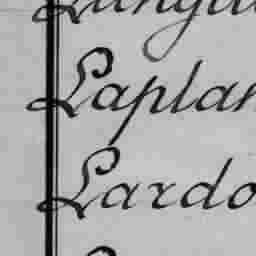 Laplan
Lardo